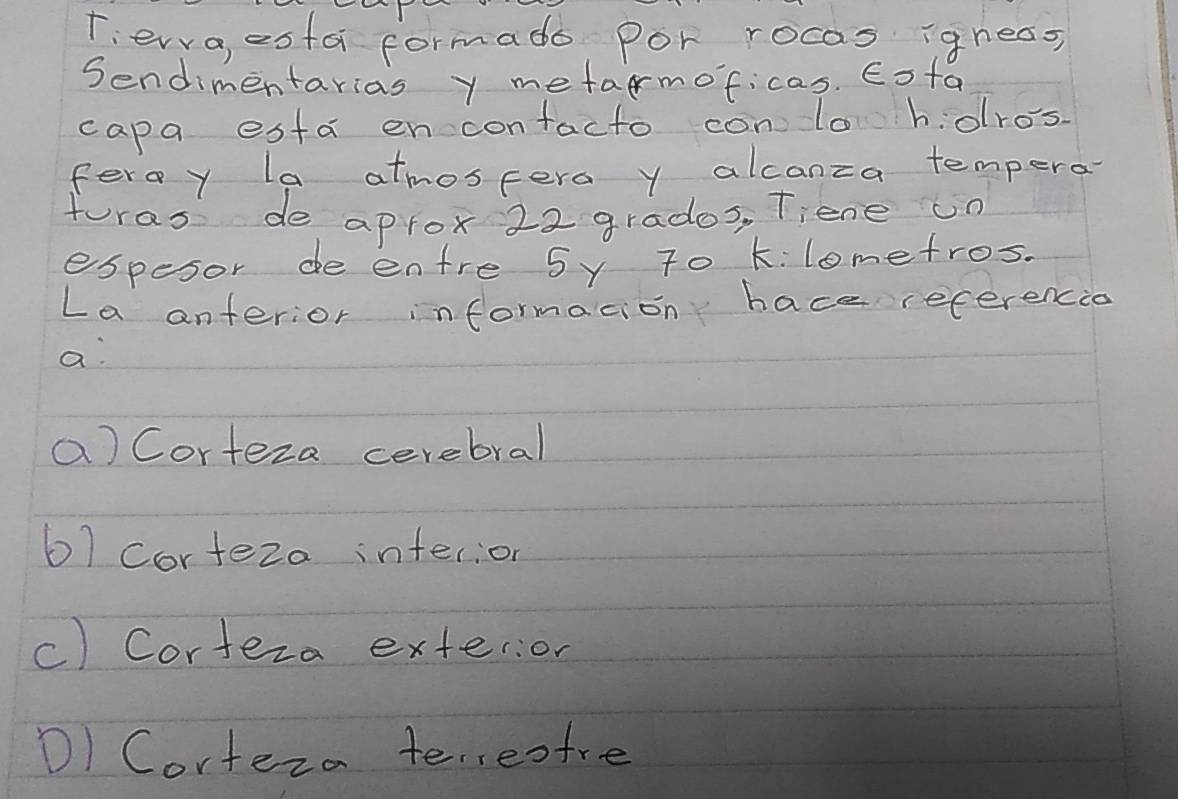 Tierra, está formado por rocas ígneas,
Sendimentarias y metarmoficas. Esta
capa está en contacto con la hidros-
fera y la atmosfera y alcanza tempera-
turas de aprox 22 grados. Tiene un
espesor de entre 5 y 70 kilometros.
La anterior información hace referencia
a:
a) Corteza cerebral
b) corteza interior
c) Corteza exterior
D) Corteza terrestre